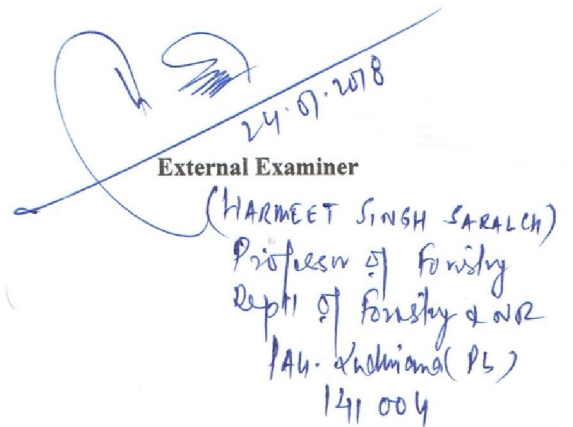 24.07.2018
External Examiner
(HARMEET SINGH SARALCH)
Professor of Forestry
Deptt of Forestry & NR
PAU. Ludhiana (Pb)
141 004